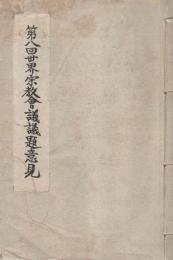 第八回世界宗教會議議題意見